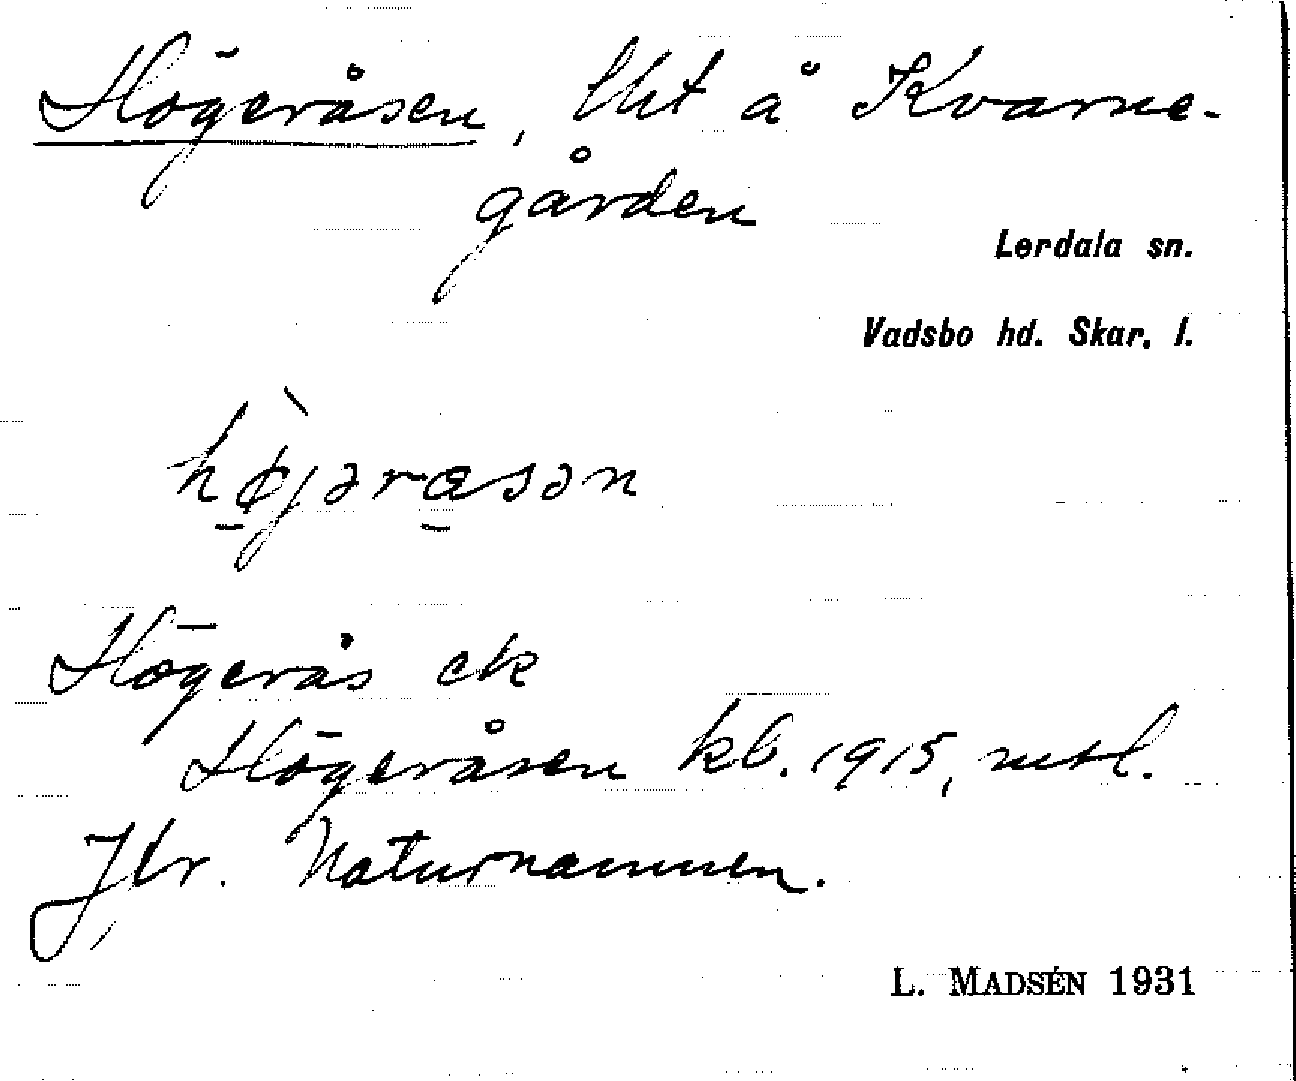 Högeråsen, lht å Kvarne-
gården
Lerdala sn.
Vadsbo hd. Skar. l.
hø̠̀jəra̠sən
Högerås ek
Högeråsen kb. 1915, mtl.
Jfr. Naturnamnen.
L. MADSÉN 1931